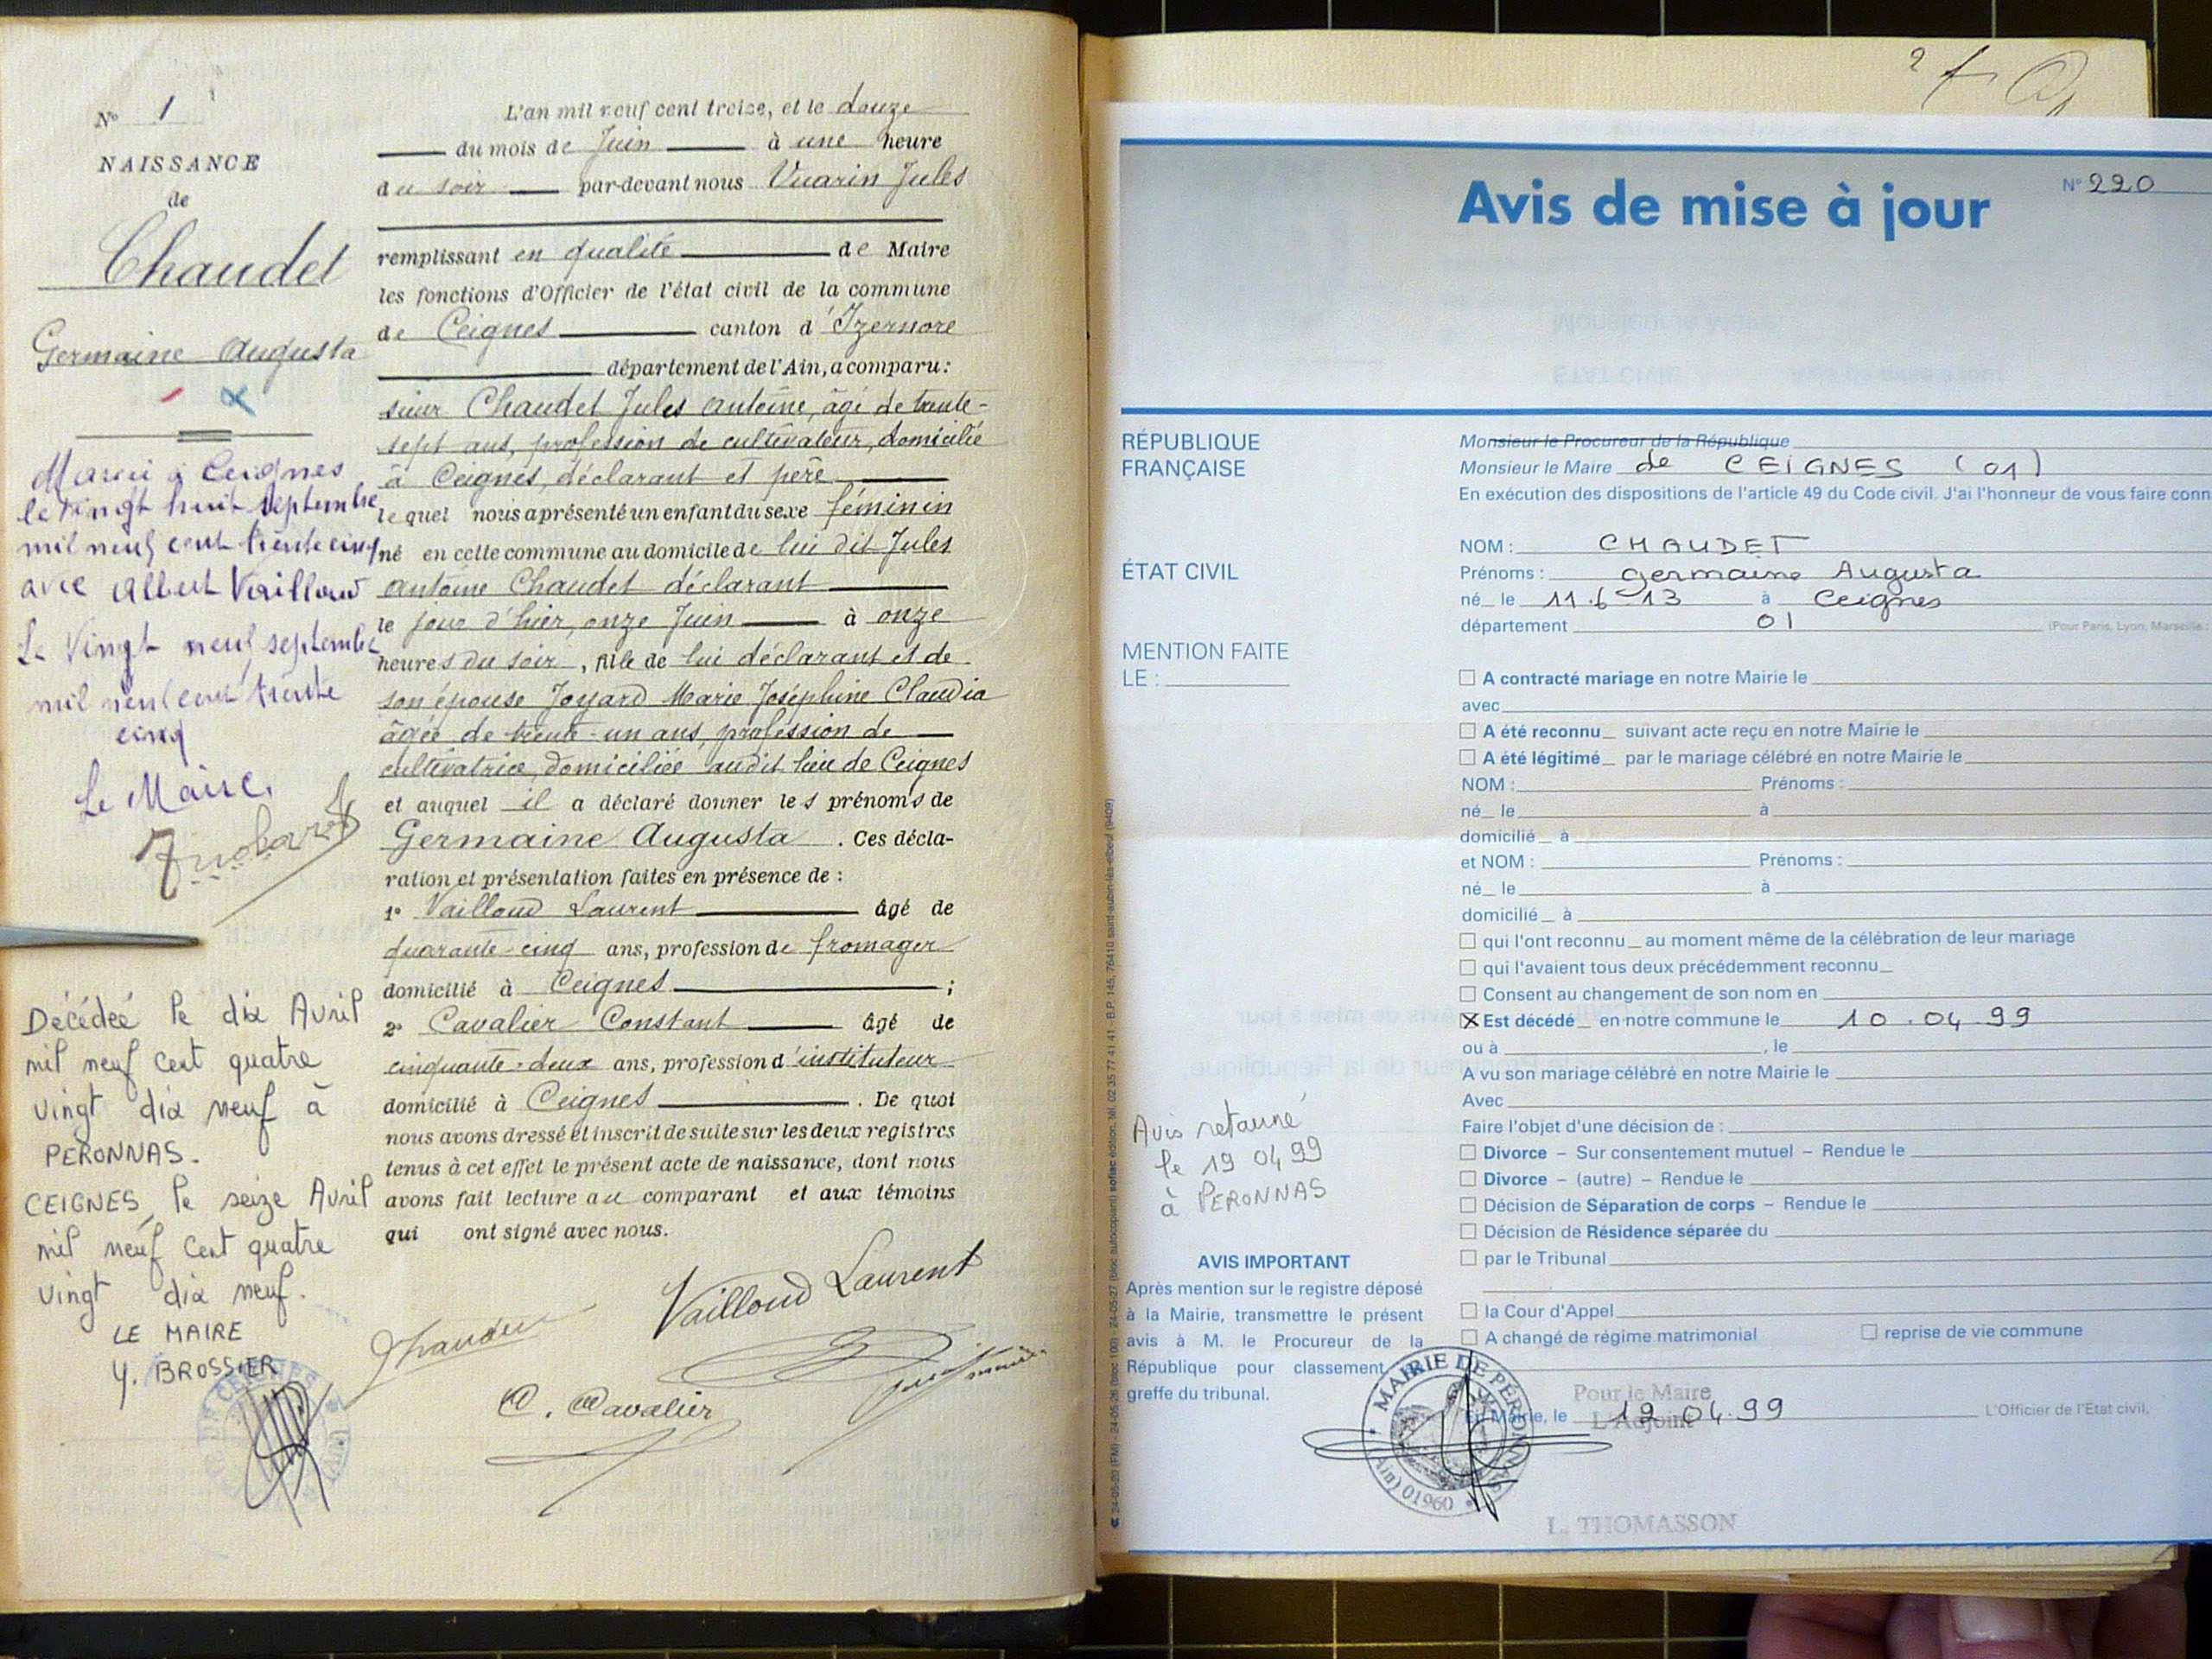 N° 1
NAISSANCE
de
Chaudet
Germaine Augusta
Marié à Ceignes
le vingt huit septembre
mil neuf cent trente cinq
avec Albert Vailloud
Le vingt neuf septembre
mil neuf cent trente
cinq
Le Maire,
Décédée le dix Avril
mil neuf cent quatre
vingt dix neuf à
PERONNAS.
CEIGNES, le seize Avril
mil neuf cent quatre
vingt dix neuf.
LE MAIRE
Y. BROSSIER
L'an mil neuf cent treize, et le douze
du mois de Juin à une heure
du soir par-devant nous Vuarin Jules
remplissant en qualité de Maire
les fonctions d'Officier de l'état civil de la commune
de Ceignes canton d'Izernore
département de l'Ain, a comparu :
sieur Chaudet Jules Antoine, âgé de trente-
sept ans, profession de cultivateur, domicilié
à Ceignes, déclarant et père
lequel nous a présenté un enfant du sexe féminin
né en cette commune au domicile de lui dit Jules
Antoine Chaudet déclarant
le jour d'hier, onze Juin à onze
heures du soir, fille de lui déclarant et de
son épouse Joyard Marie Joséphine Claudia
âgée de trente-un ans, profession de
cultivatrice, domiciliée audit lieu de Ceignes
et auquel il a déclaré donner les prénoms de
Germaine Augusta. Ces décla-
ration et présentation faites en présence de :
1° Vailloud Laurent âgé de
quarante-cinq ans, profession de fromager
domicilié à Ceignes ;
2° Cavalier Constant âgé de
cinquante-deux ans, profession d'instituteur
domicilié à Ceignes. De quoi
nous avons dressé et inscrit de suite sur les deux registres
tenus à cet effet le présent acte de naissance, dont nous
avons fait lecture au comparant et aux témoins
qui ont signé avec nous.
Vailloud Laurent
Chaudet
C. Cavalier
Avis de mise à jour
N° 220
RÉPUBLIQUE
FRANÇAISE
ÉTAT CIVIL
MENTION FAITE
LE :
Monsieur le Procureur de la République
Monsieur le Maire de CEIGNES (01)
En exécution des dispositions de l'article 49 du Code civil. J'ai l'honneur de vous faire conn
NOM : CHAUDET
Prénoms : Germaine Augusta
né_ le 11.6.13 à Ceignes
département 01 (Pour Paris, Lyon, Marseille :
A contracté mariage en notre Mairie le
avec
A été reconnu_ suivant acte reçu en notre Mairie le
A été légitimé_ par le mariage célébré en notre Mairie le
NOM : Prénoms :
né_ le à
domicilié_ à
et NOM : Prénoms :
né_ le à
domicilié_ à
qui l'ont reconnu_ au moment même de la célébration de leur mariage
qui l'avaient tous deux précédemment reconnu_
Consent au changement de son nom en
X Est décédé_ en notre commune le 10.04.99
ou à , le
A vu son mariage célébré en notre Mairie le
Avec
Faire l'objet d'une décision de :
Divorce – Sur consentement mutuel – Rendue le
Divorce – (autre) – Rendue le
Décision de Séparation de corps – Rendue le
Décision de Résidence séparée du
par le Tribunal
la Cour d'Appel
A changé de régime matrimonial reprise de vie commune
Avis retourné
le 19 04 99
à PERONNAS
AVIS IMPORTANT
Après mention sur le registre déposé
à la Mairie, transmettre le présent
avis à M. le Procureur de la
République pour classement
greffe du tribunal.
MAIRIE DE PÉRONNAS
(Ain) 01960
Pour le Maire
L'Adjoint
En Mairie, le 12.04.99 L'Officier de l'État civil,
L. THOMASSON